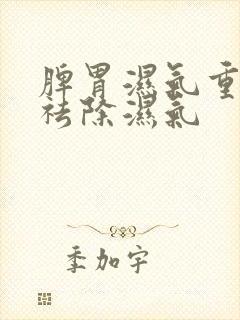 脾胃濕氣重
祛除濕氣
季加宇